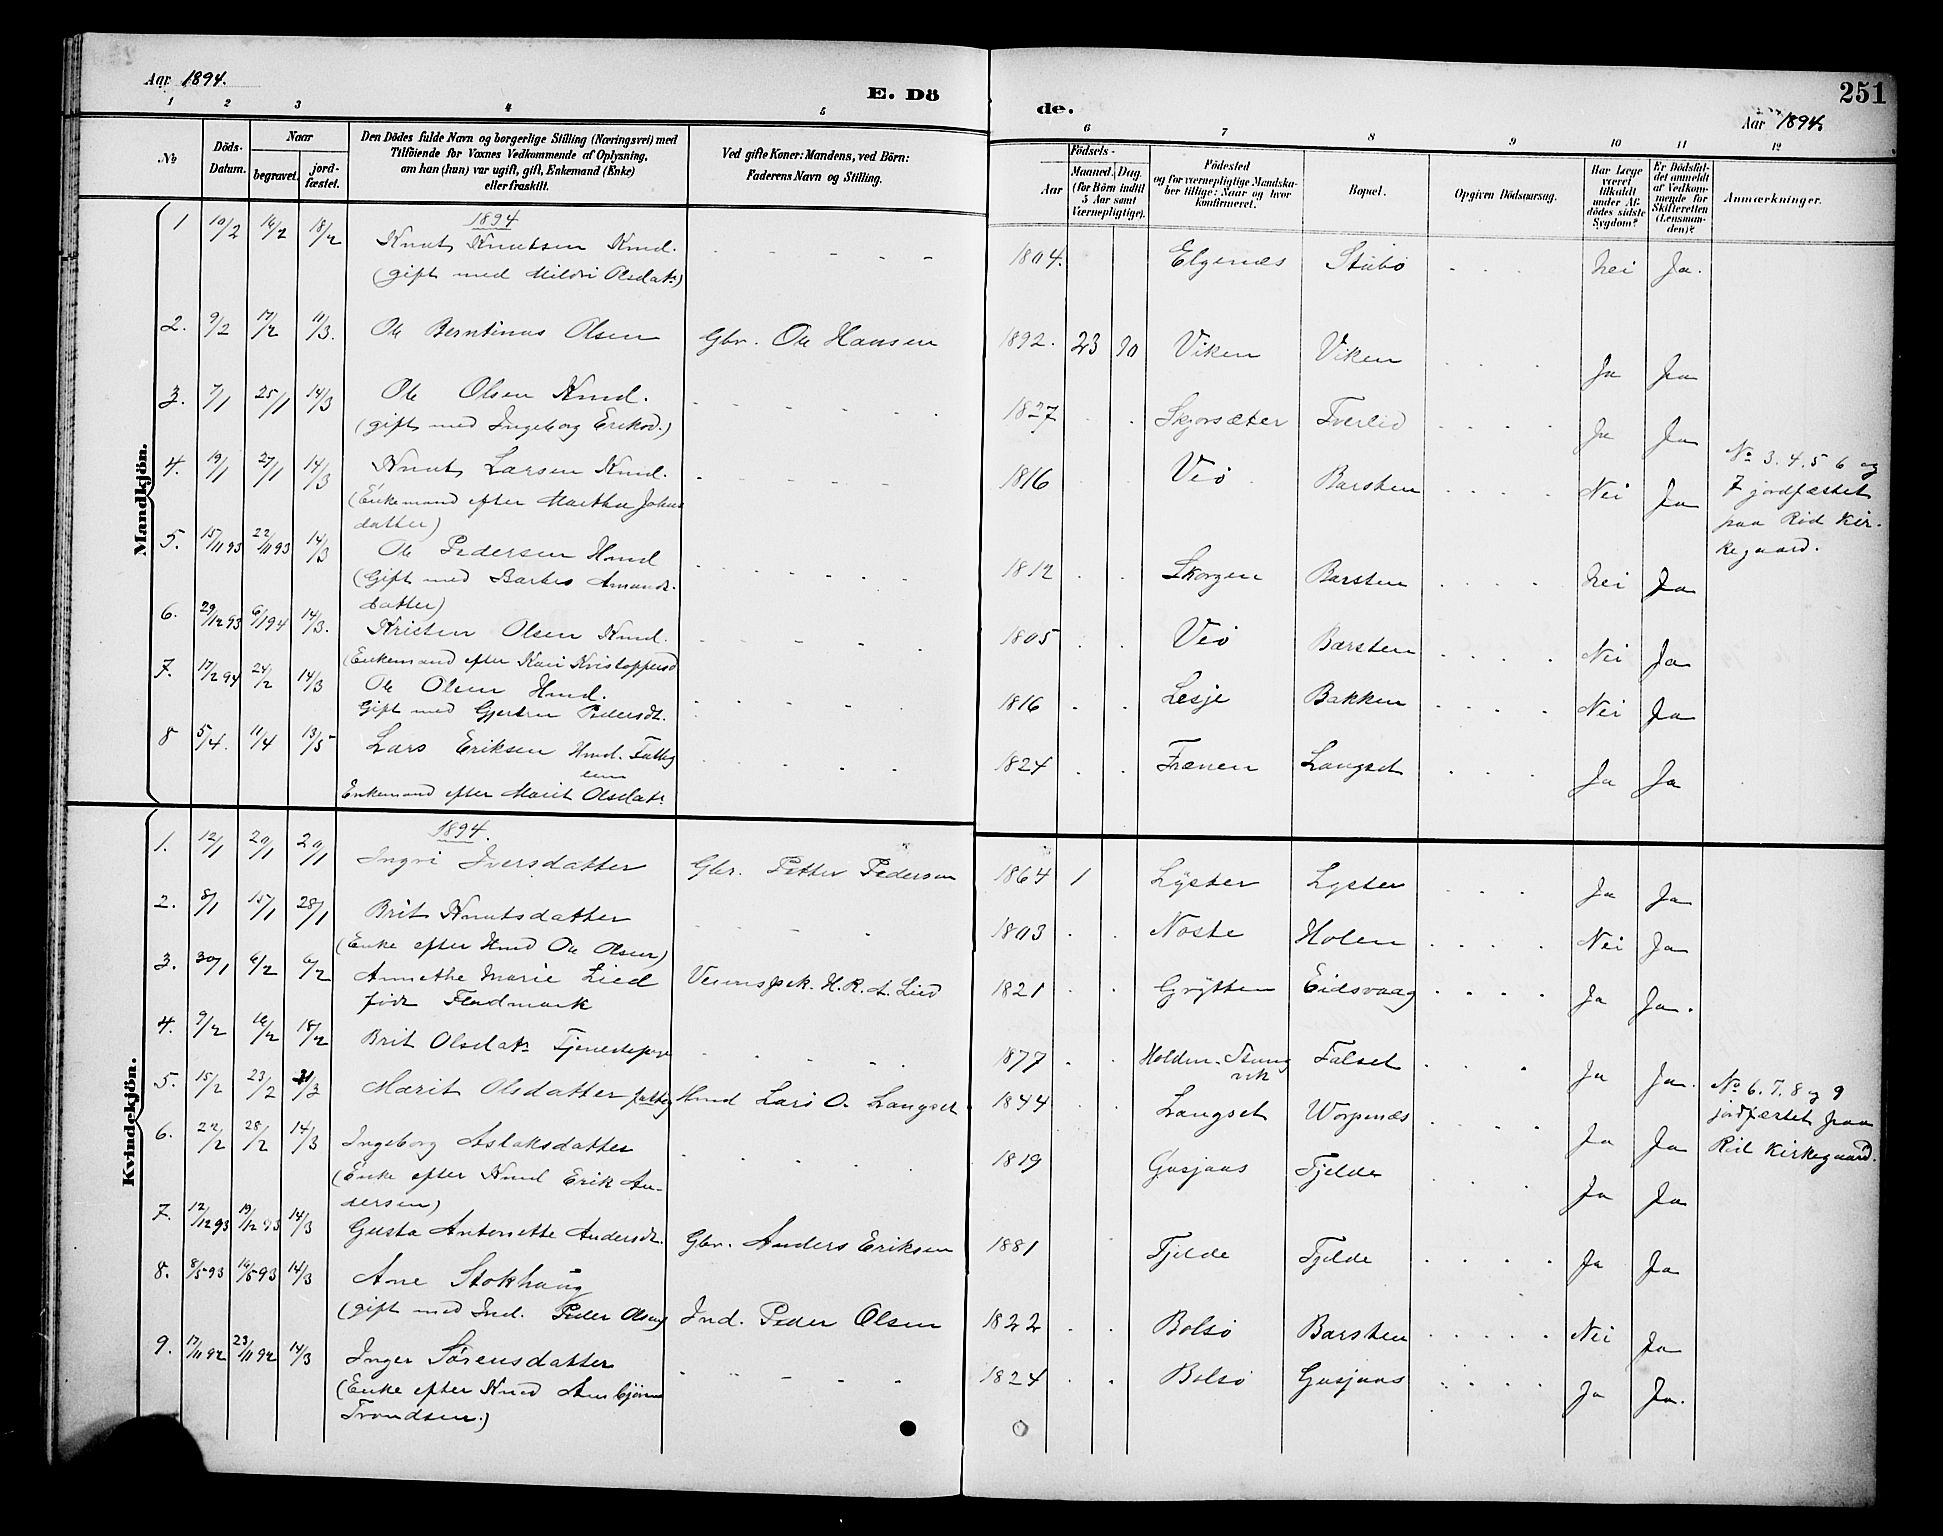 Aar 1894.
E. Döde.
Aar 1894.
251
1 2 3 4 5 6 7 8 9 10 11 12
No
Döds-Datum.
Naar
begravet.
jord-fæstet.
Den Dödes fulde Navn og borgerlige Stilling (Næringsvei) med
Tilföiende for Voxnes Vedkommende af Oplysning,
om han (hun) var ugift, gift, Enkemand (Enke)
eller fraskilt.
Ved gifte Koner: Mandens, ved Börn:
Faderens Navn og Stilling.
Födsels-
Aar
Maaned. Dag.
(for Börn indtil
5 Aar samt
Værnepligtige).
Födested
og for værnepligtige Mandska-
ber tillige: Naar og hvor
konfirmeret.
Bopæl.
Opgiven Dödsaarsag.
Har Læge
været
tilkaldt
under Af-
dödes sidste
Sygdom?
Er Dödsfal-
det anmeldt
af Vedkom-
mende for
Skifteretten
(Lensman-
den)?
Anmærkninger.
Mandkjön.
1894
1 10/2 16/2 18/2 Knut Knutsen Kmd. 1804. Elgenæs Stubø Nei Ja.
(gift med Mildri Olsdatr)
2. 9/2 17/2 11/3. Ole Berntinus Olsen Gbr. Ole Hansen 1892. 23 10 Viken Viken Ja Ja
3. 7/1 25/1 14/3 Ole Olsen Kmd. 1827 Skjorsæter Tverlid Ja Ja
(gift med Ingeborg Eriksd.)
4. 19/1 27/1 14/3 Knut Larsen Kmd. 1816 Veø Barsten Nei Ja
(Enkemand efter Marthe Johns
datter)
No 3. 4. 5 6 og
7 jordfæstet
paa Rød Kir-
kegaard.
5. 15/11 93 22/11 93 14/3 Ole Pedersen Hmd 1812 Skorgen Barsten Nei Ja
(Gift med Barbro Amunds-
datter)
6. 29/12 93 6/1 94 14/3. Kristen Olsen Kmd. 1805 Veø Barsten Nei Ja
(Enkemand efter Kari Kristoppersd
7. 17/2 94 24/2 14/3 Ole Olsen Hmd. 1816 Lesje Bakken Nei Ja
Gift med Gjertru Pedersdt.
8 5/4. 11/4 13/5 Lars Eriksen Hmd. Fattig 1824 Frænen Langset Ja Ja
lem
Enkemand efter Marit Olsdatr
Kvindekjön.
1894.
1. 12/1 20/1 20/1 Ingri Iversdatter Gbr. Petter Pedersen 1864 1 Lyster Lyster Ja Ja
2. 8/1 15/1 28/1 Brit Knutsdatter 1803 Noste Holen Nei Ja
(Enke efter Hmd Ole Olsen)
3. 30/1 6/2 6/2 Annethe Marie Lied H. R. A. Lied 1821 Grytten Eidsvaag Ja Ja.
født Fladmark
4. 9/2 16/2 18/2 Brit Olsdatr Tjenestepige 1877 Holden. Falset Ja Ja.
5. 15/2 23/2 31/3 Marit Olsdatter fattig Hmd Lars O. Langset 1844 Langset Worpenæs Ja Ja
No 6. 7. 8 og 9
jordfæstet paa
Rød Kirkegaard.
6. 22/2 28/2 14/3 Ingeborg Aslaksdatter 1819 Gusjaas Tjelde Ja Ja
(Enke efter Kmd Erik An-
dersen)
7. 12/12 93 19/12 93 14/3 Gusta Antonette Andersdt. Gbr. Anders Eriksen 1881 Tjelde Tjelde Ja Ja
8. 8/5 93 16/5 93 14/3 Ane Stokhaug Ind. Peder Olsen 1822 Bolsø Barsten Nei Ja
(gift med Ind. Peder Olsen)
9. 17/11 92 23/11 92 14/3 Inger Sørensdatter 1824 Bolsø Gusjaas Ja Ja.
(Enke efter Kmd Ambjørn
Trondsen.)